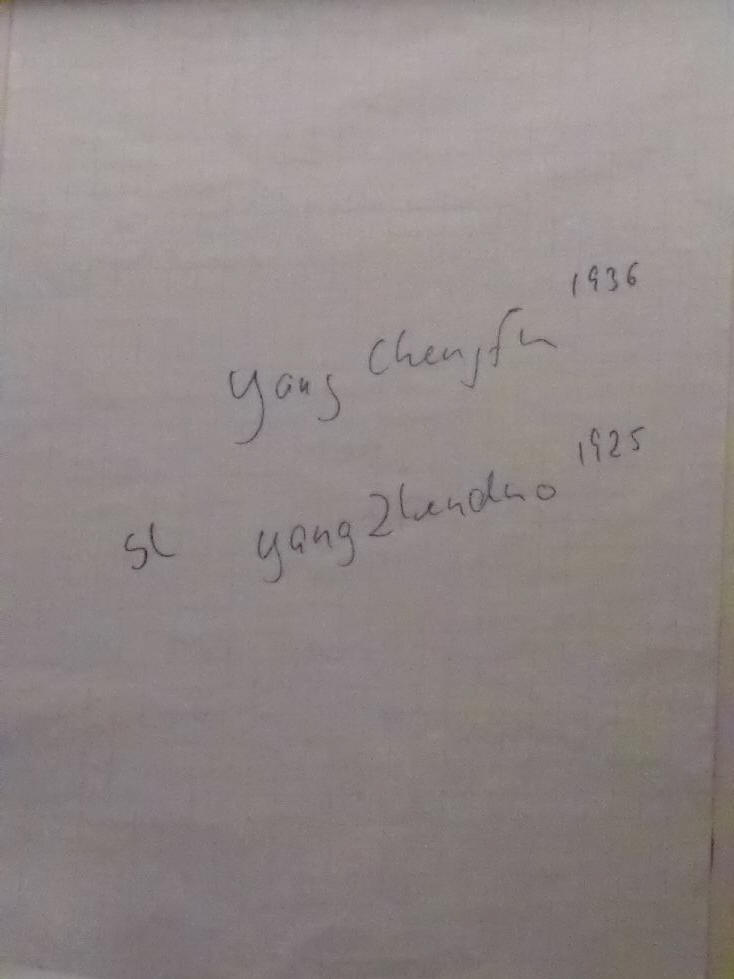 Yang Chengfu 1936
SL Yang Zhenduo 1925